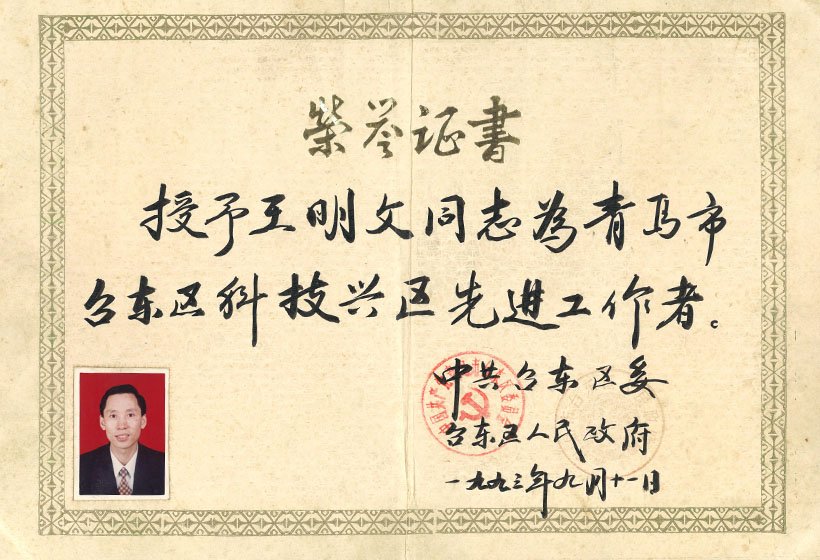 荣誉证书
授予王明文同志为青岛市
台东区科技兴区先进工作者。
中共台东区委
台东区人民政府
一九九三年九月十一日